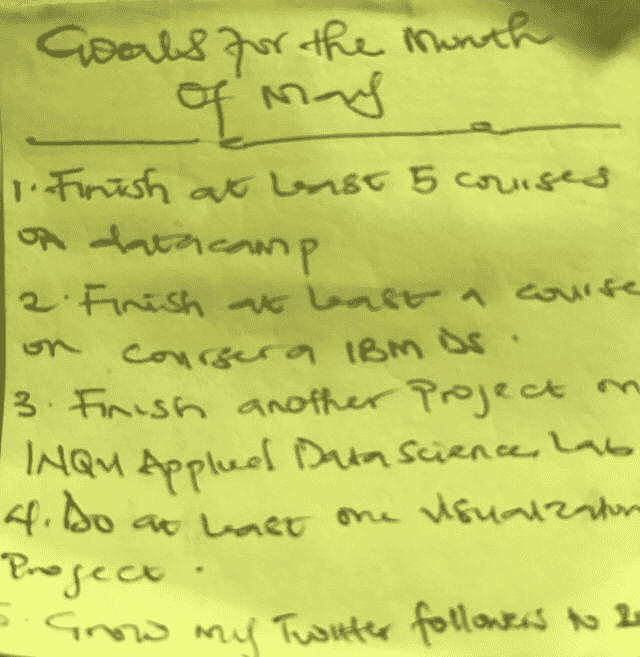 Goals for the Month
Of May
1. Finish at least 5 courses
on datacamp
2. Finish at least a course
on coursera IBM DS.
3. Finish another Project on
Applied Data Science Lab
4. Do at least one visualization
Project.
5. Grow my Twitter followers to